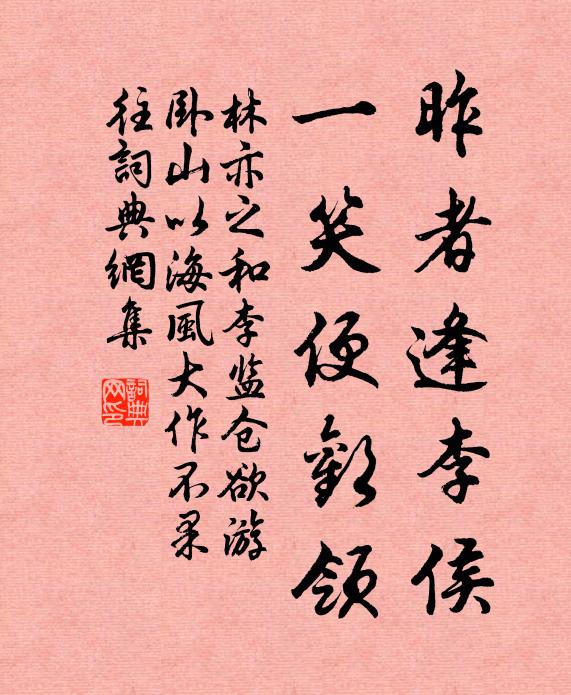 昨者逢李侯
一笑便歡領
林亦之和李监仓欲游
卧山以海風大作不果
往詞典網集
詞典
网印